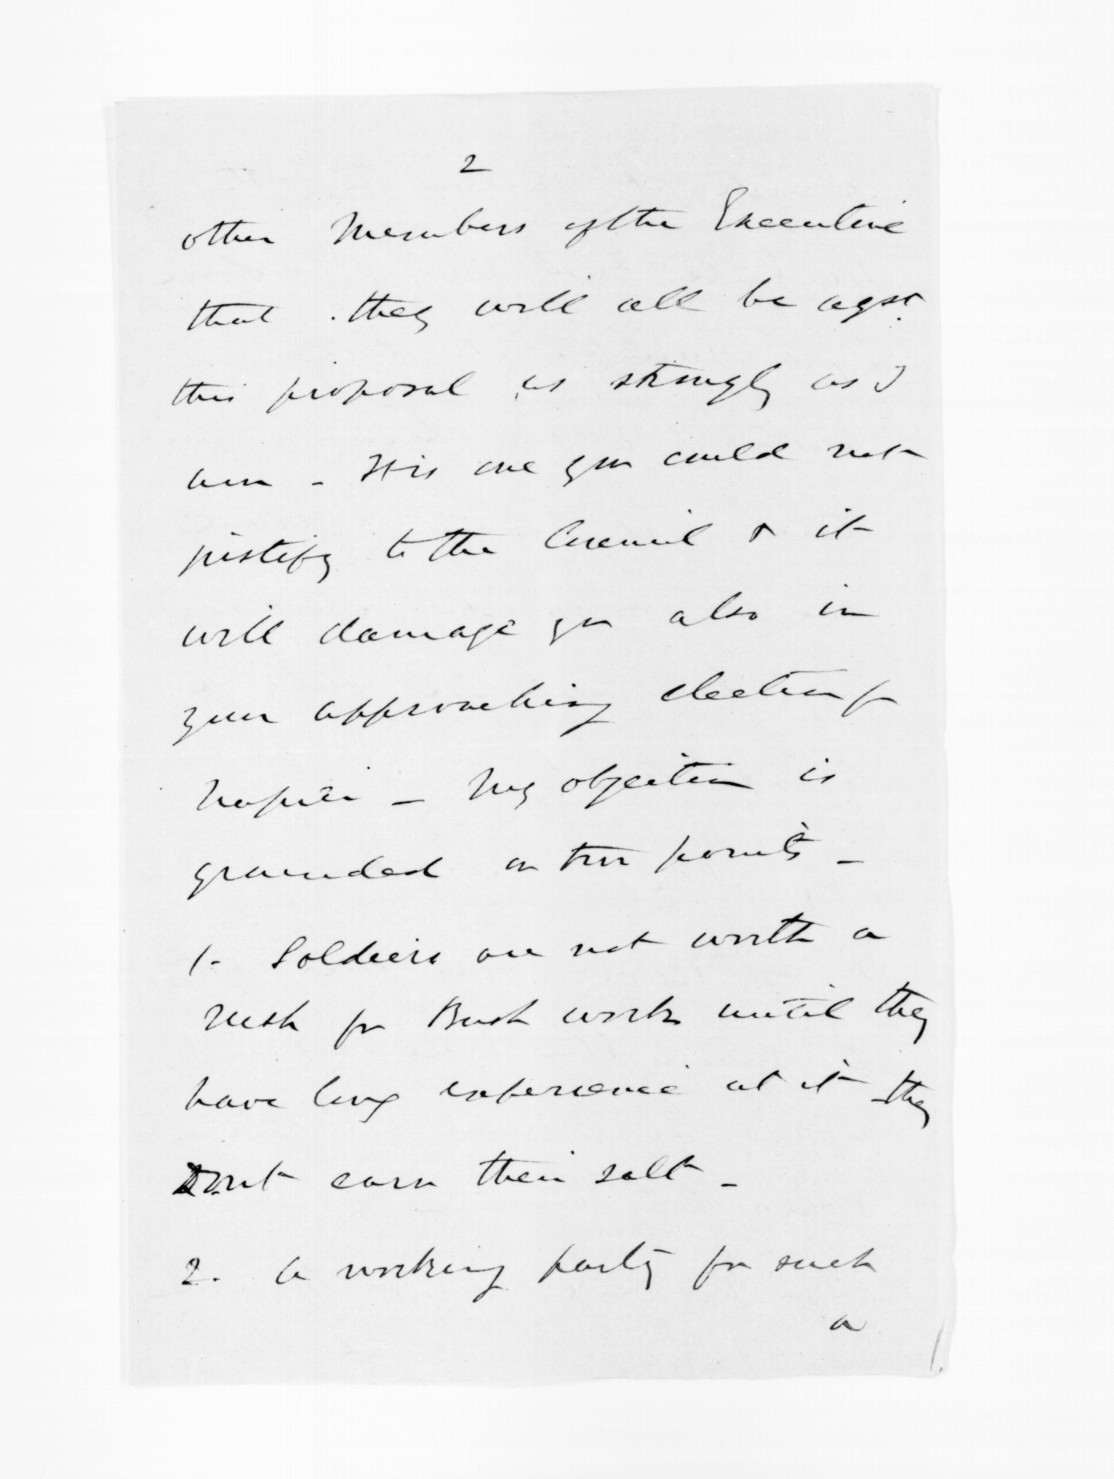 2
other Members of the Executive
that they will all be agst.
this proposal as strongly as I
am - It is one you could not
justify to the Council & it
will damage you also in
your approaching election for
Napier - My objection is
grounded on two points -
1. Soldiers are not worth a
rush for Bush work until they
have long experience at it they
Dont earn their salt -
2. a working party for such
a